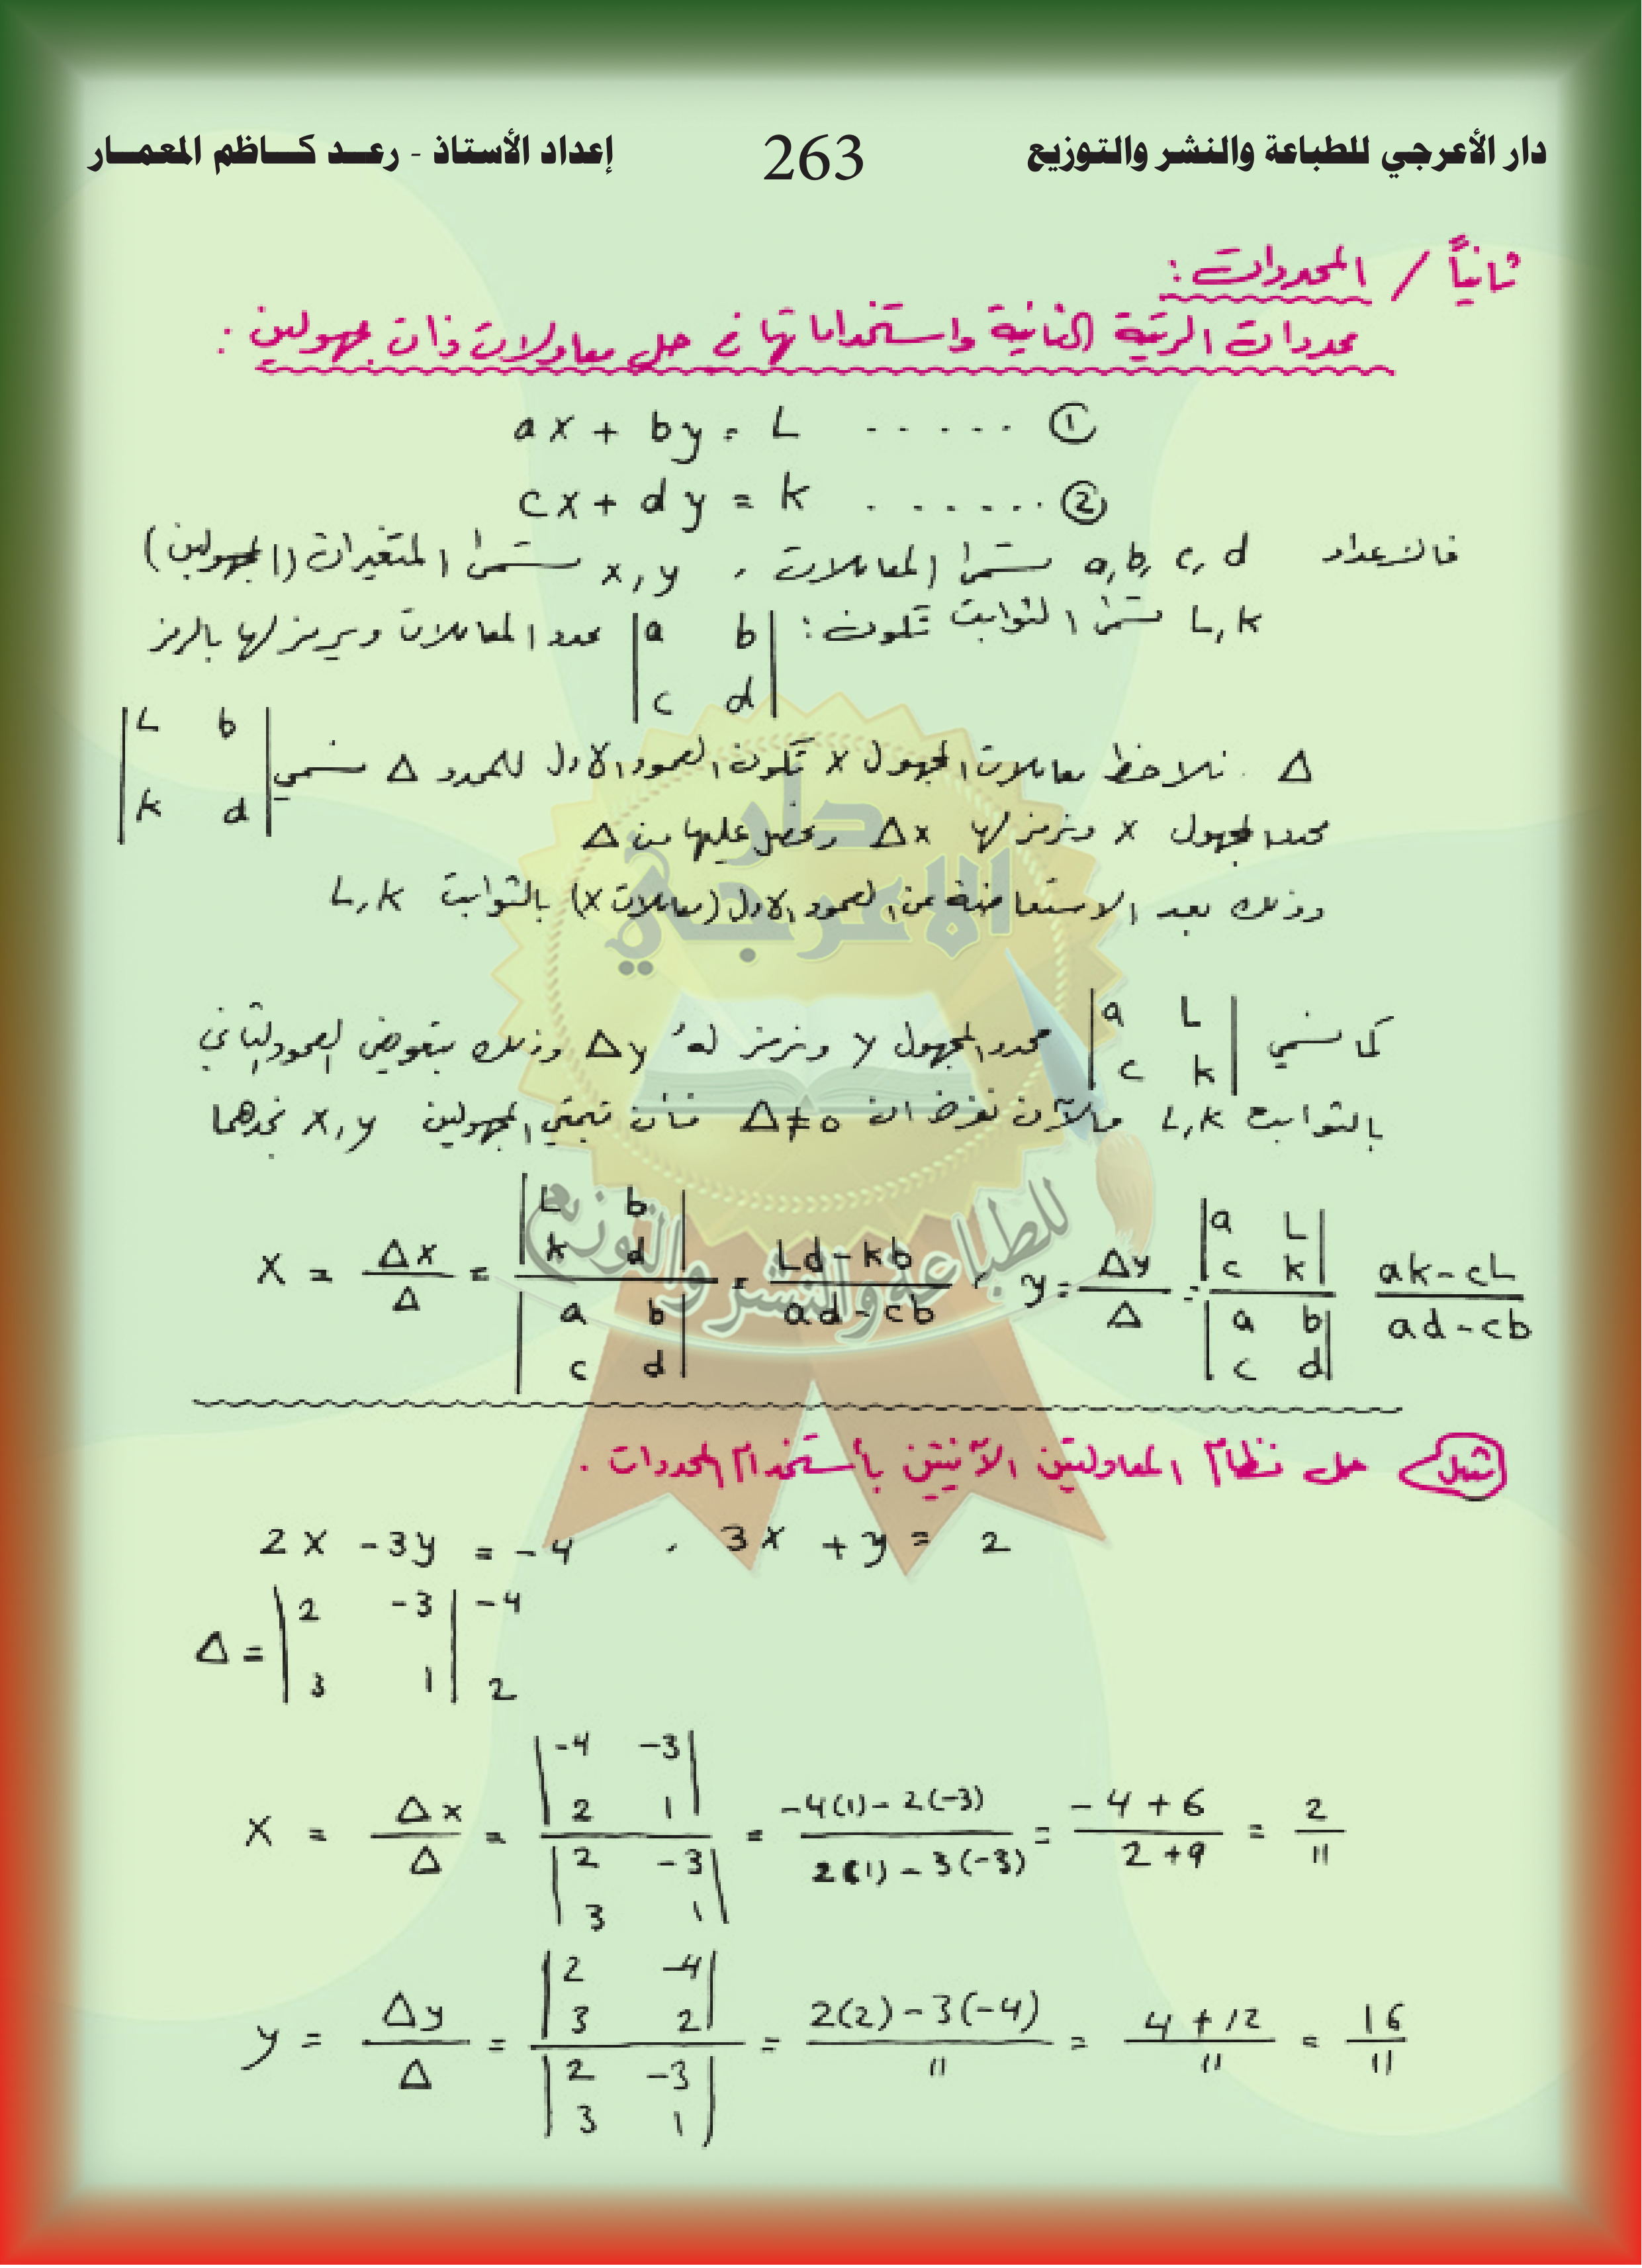 دار الأعرجي للطباعة والنشر والتوزيع 263 إعداد الأستاذ - رعد كاظم المعمار
ثانياً / المحددات :
محددات الرتبة الثانية واستخداماتها في حل معاولات ذات مجهولين :
ax + by = L ..... ①
cx + dy = k ...... ②
فالاعداد a, b, c, d تسمى المعاملات ، x, y تسمى المتغيرات (المجهولين)
L, k تسمى الثوابت تكون : | a b | محدد المعاملات ويرمز لها بالرمز
| c d |
| L b |
Δ . نلاحظ معاملات المجهول x تكون العمود الاول للمحدد Δ نسمي
| k d |
محدد المجهول x ونرمز لها Δx ونحصل عليها من Δ
وذلك بعد الاستعاضة عن العمود الاول (معاملات x) بالثوابت L, k
كما نسمي | a L | محدد المجهول y ونرمز له Δy وذلك بتعويض العمود الثاني
| c k |
بالثوابت L, k والآن نفرض ان Δ≠0 فأن قيمتي المجهولين x, y نجدهما
x = Δx / Δ = | L b ; k d | / | a b ; c d | = Ld - kb / ad - cb ، y = Δy / Δ = | a L ; c k | / | a b ; c d | ak - cL / ad - cb
مثال حل نظام المعاولتين الآتيتين بأستخدام المحددات .
2x - 3y = -4 . 3x + y = 2
Δ = | 2 -3 | -4
| 3 1 | 2
x = Δx / Δ = | -4 -3 ; 2 1 | / | 2 -3 ; 3 1 | = -4(1) - 2(-3) / 2(1) - 3(-3) = -4 + 6 / 2 + 9 = 2 / 11
y = Δy / Δ = | 2 -4 ; 3 2 | / | 2 -3 ; 3 1 | = 2(2) - 3(-4) / 11 = 4 + 12 / 11 = 16 / 11
دار
الاعرجي
للطباعة والنشر والتوزيع